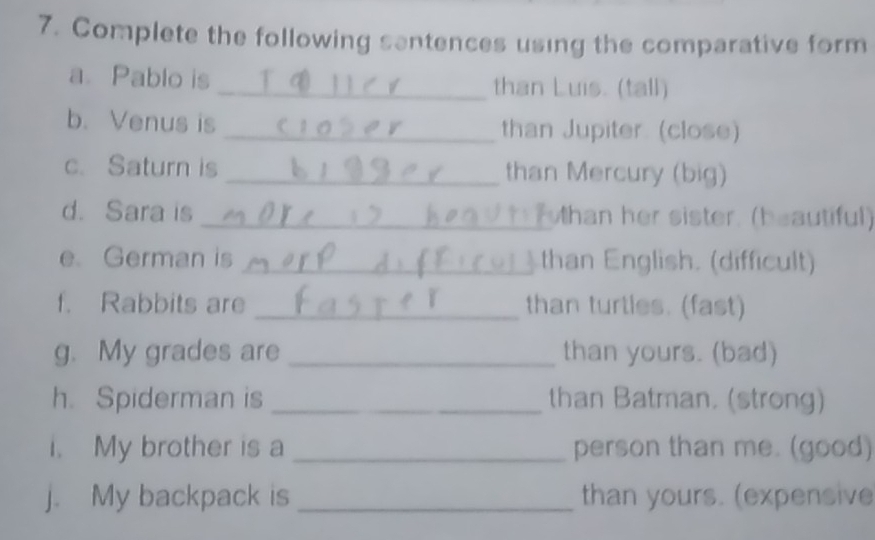 7. Complete the following sentences using the comparative form
a. Pablo is Taller than Luis. (tall)
b. Venus is closer than Jupiter. (close)
c. Saturn is bigger than Mercury (big)
d. Sara is more is beautifu than her sister. (beautiful)
e. German is more difficult than English. (difficult)
f. Rabbits are Faster than turtles. (fast)
g. My grades are ______ than yours. (bad)
h. Spiderman is ______ than Batman. (strong)
i. My brother is a ______ person than me. (good)
j. My backpack is ______ than yours. (expensive